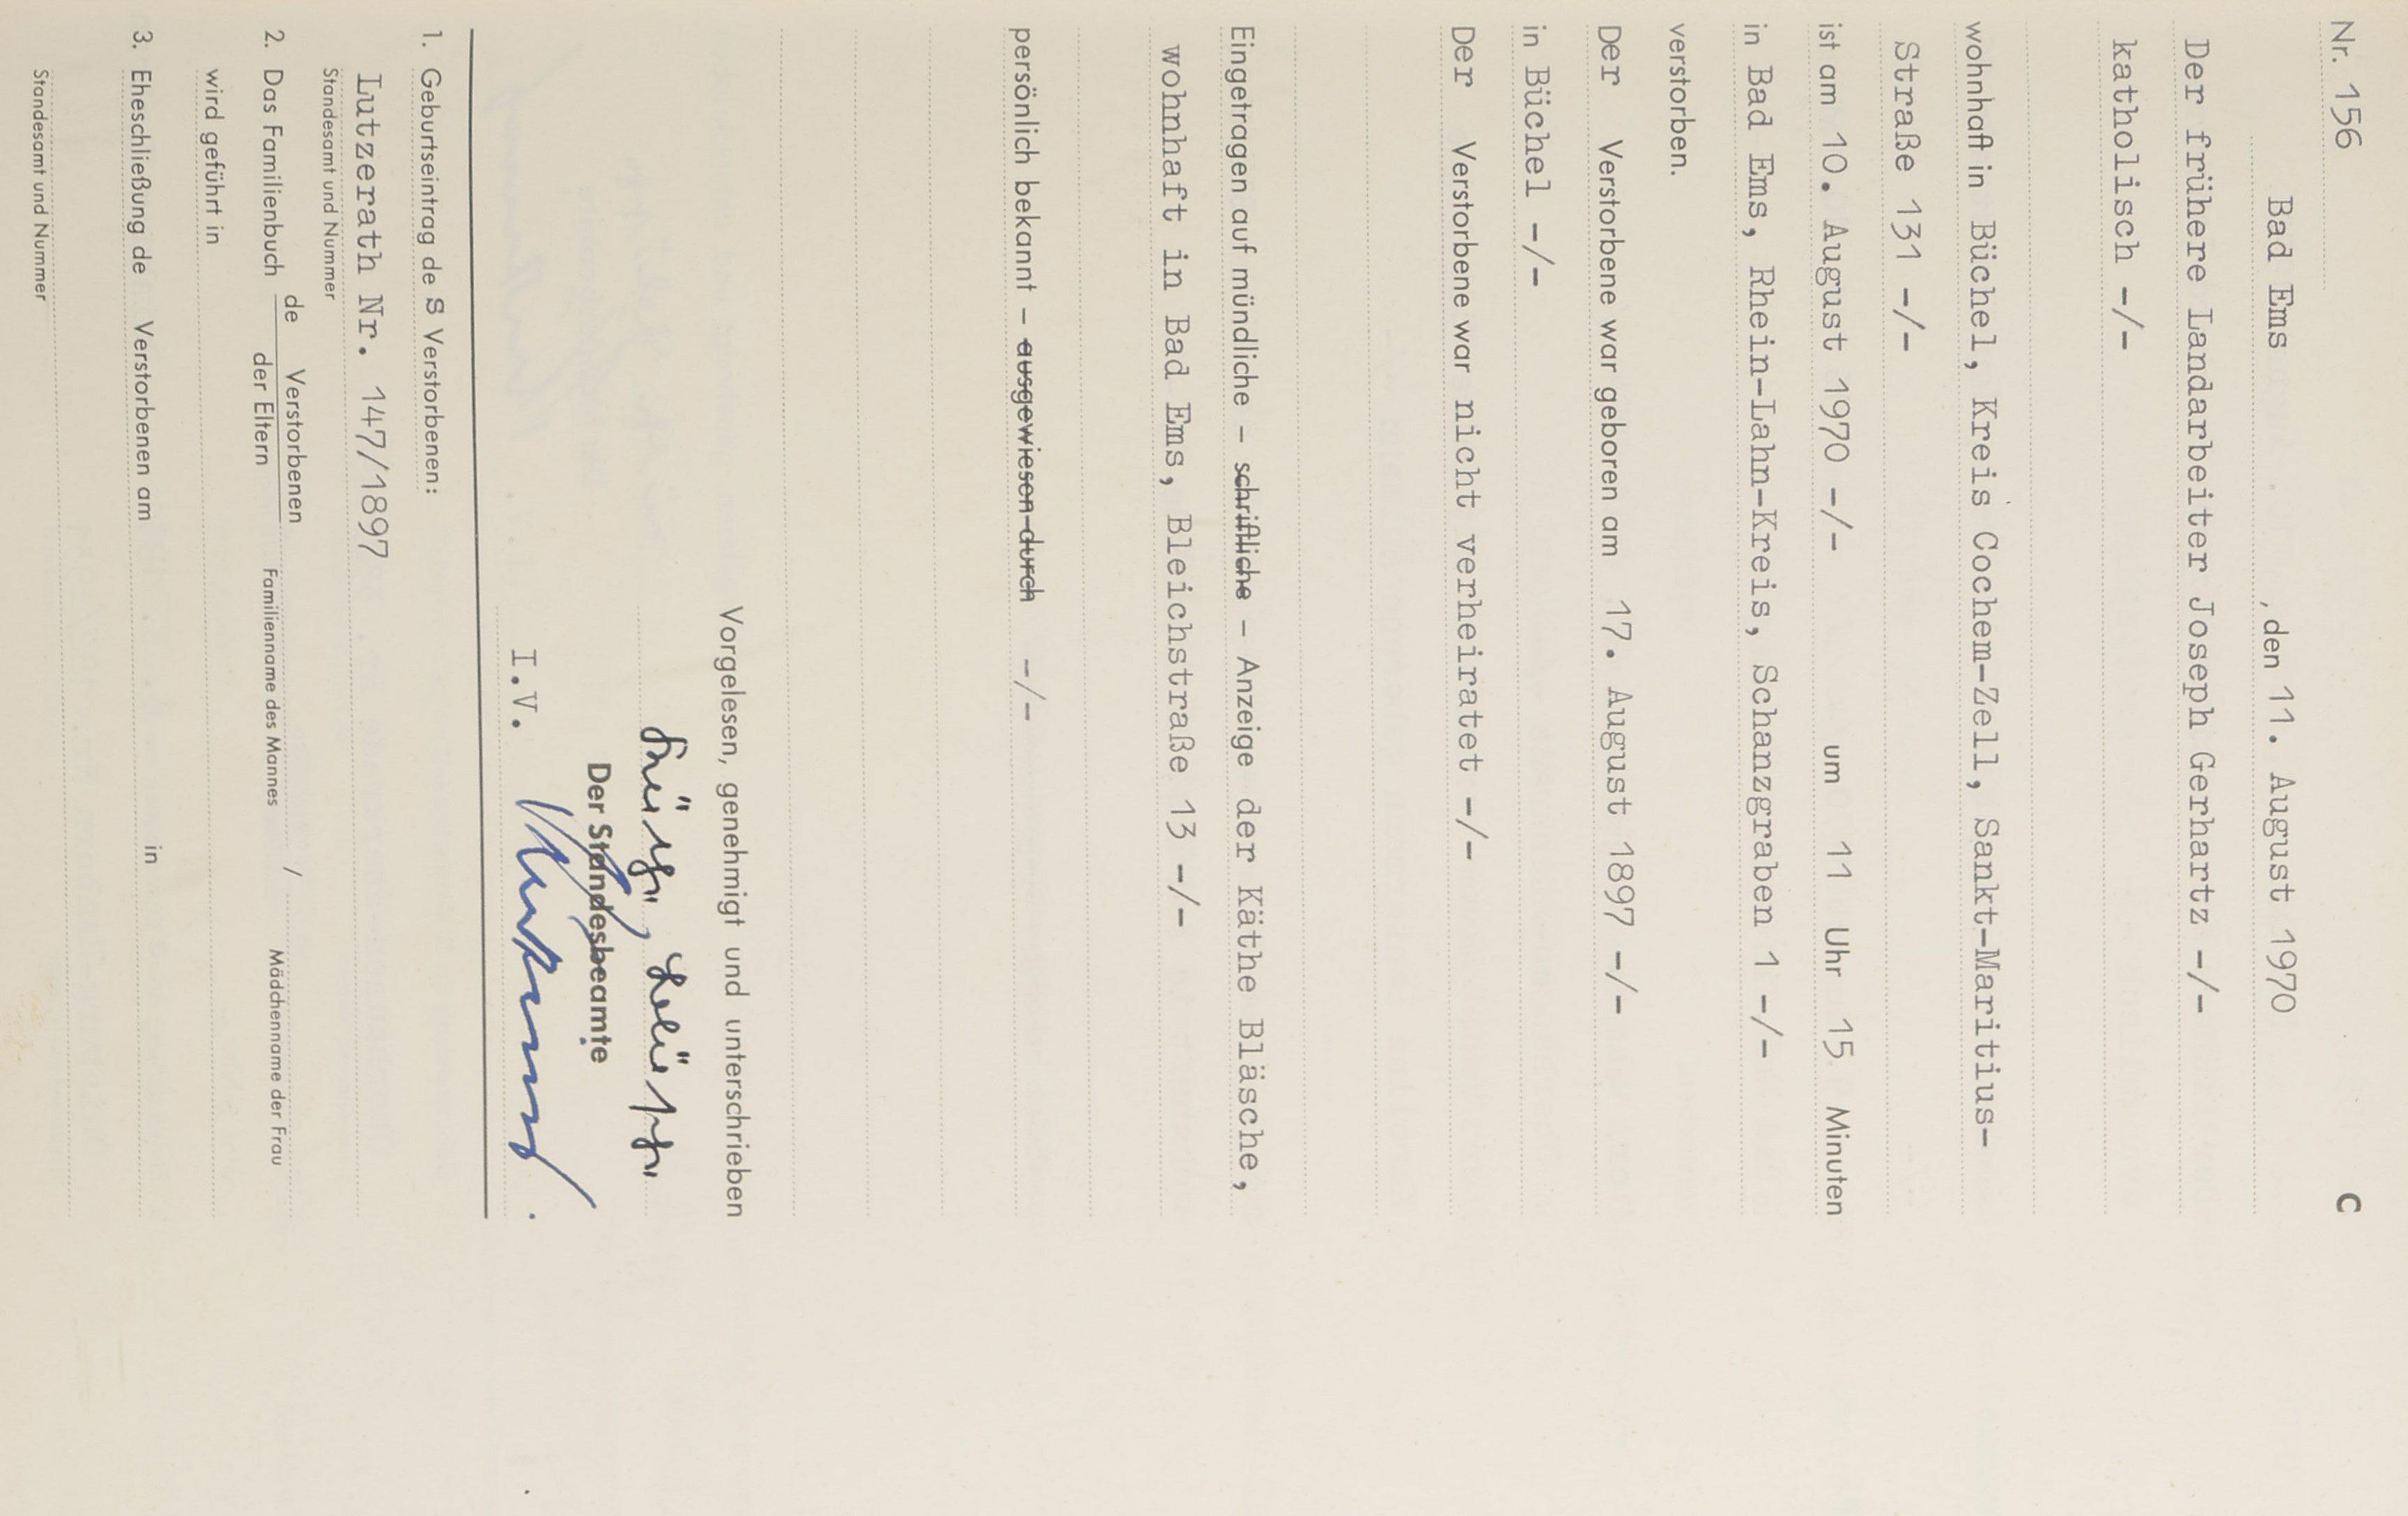 Nr. 156 C
Bad Ems, den 11. August 1970
Der frühere Landarbeiter Joseph Gerhartz -/-
katholisch -/-
wohnhaft in Büchel, Kreis Cochem-Zell, Sankt-Maritius-
Straße 131 -/-
ist am 10. August 1970 -/- um 11 Uhr 15 Minuten
in Bad Ems, Rhein-Lahn-Kreis, Schanzgraben 1 -/-
verstorben.
Der Verstorbene war geboren am 17. August 1897 -/-
in Büchel -/-
Der Verstorbene war nicht verheiratet -/-
Eingetragen auf mündliche - schriftliche - Anzeige der Käthe Bläsche,
wohnhaft in Bad Ems, Bleichstraße 13 -/-
persönlich bekannt - ausgewiesen durch -/-
Vorgelesen, genehmigt und unterschrieben
Der Standesbeamte
I.V.
1. Geburtseintrag des Verstorbenen:
Lutzerath Nr. 147/1897
Standesamt und Nummer
de Verstorbenen
2. Das Familienbuch der Eltern /
Familienname des Mannes Mädchenname der Frau
wird geführt in
3. Eheschließung de Verstorbenen am in
Standesamt und Nummer